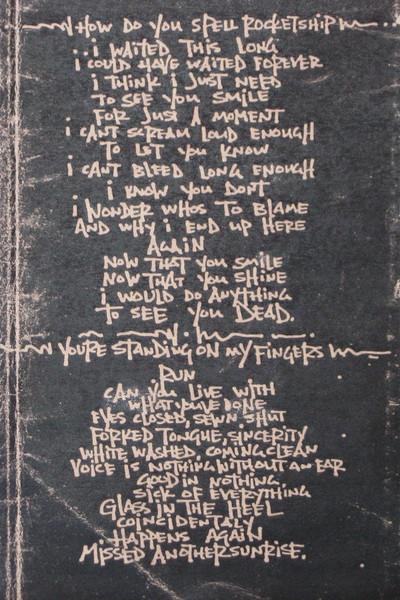 HOW DO YOU SPELL ROCKETSHIP
..i WAITED THIS LONG
i COULD HAVE WAITED FOREVER
i THINK i JUST NEED
TO SEE YOU SMILE
FOR JUST A MOMENT
i CANT SCREAM LOUD ENOUGH
TO LET YOU KNOW
i CANT BLEED LONG ENOUGH
i KNOW YOU DONT
i WONDER WHOS TO BLAME
AND WHY i END UP HERE
AGAiN
NOW THAT YOU SMILE
NOW THAT YOU SHINE
i WOULD DO ANYTHING
TO SEE YOU DEAD.
YOU'RE STANDING ON MY FINGERS
RUN
CAN YOU LIVE WITH
WHAT YOUVE DONE
EYES CLOSED, SEWN SHUT
FORKED TONGUE, SINCERITY
WHITE WASHED, COMING CLEAN
VOICE IS NOTHING WITHOUT an EAR
GOOD IN NOTHING
SICK OF EVERYTHING
GLASS IN THE HEEL
COINCIDENTALY
HAPPENS AGAIN
MISSED ANOTHER SUNRISE.